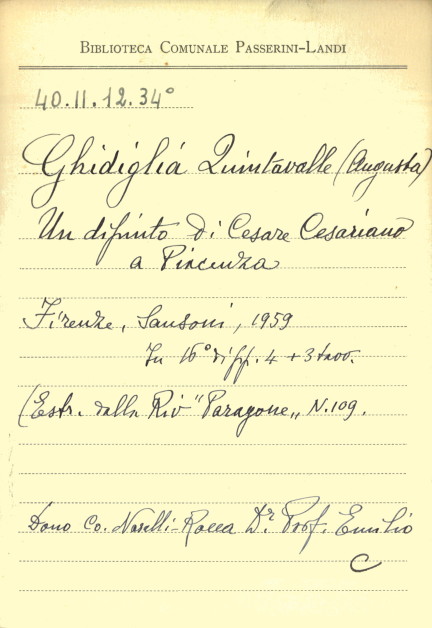 BIBLIOTECA COMUNALE PASSERINI-LANDI
40.II.12.34°
Ghidiglia Quintavalle (Augusta)
Un dipinto di Cesare Cesariano
a Piacenza
Firenze, Sansoni, 1959
In 16° di pp. 4 + 3 tavv.
(Estr. dalla Riv "Paragone„ N.109.
Dono Co. Nasalli-Rocca Dr. Prof. Emilio
C